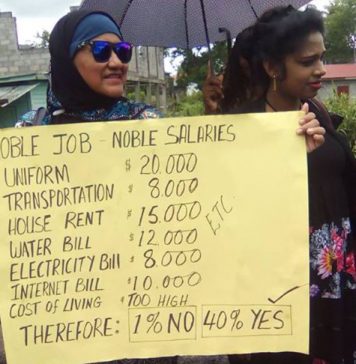 OBLE JOB - NOBLE SALARIES
UNIFORM $ 20.000
TRANSPORTATION $ 8.000
HOUSE RENT $ 15.000
WATER BILL $ 12.000
ELECTRICITY BILL $ 8.000
INTERNET BILL $ 10.000
ETC.
COST OF LIVING $ TOO HIGH
THEREFORE: 1% NO 40% YES